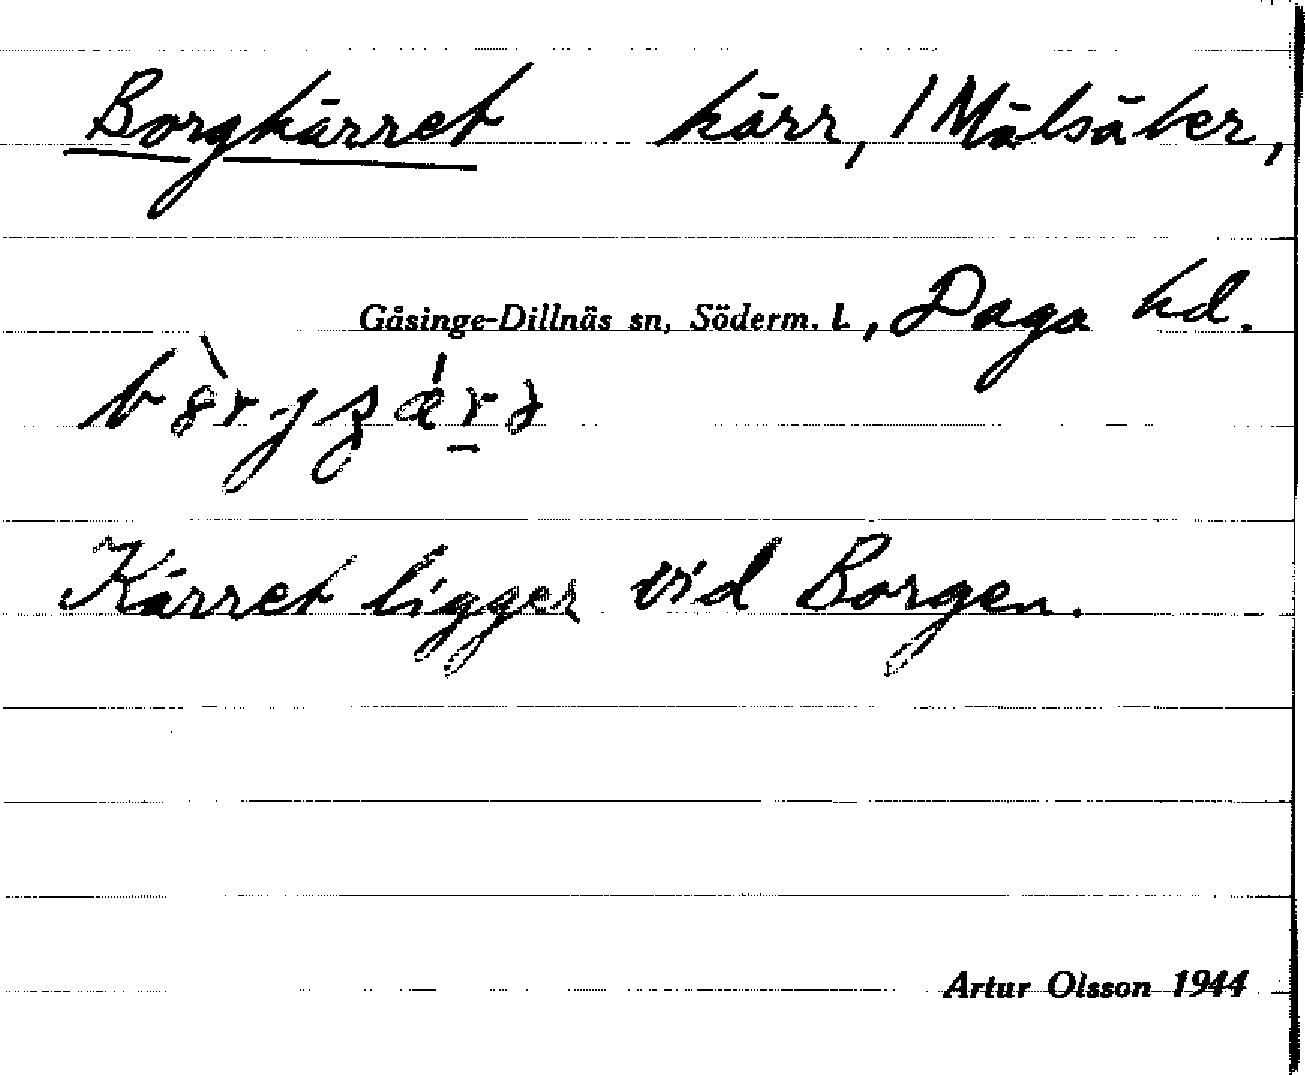 Borgkärret kärr, / Mälsåker,
Gåsinge-Dillnäs sn, Söderm. l., Daga hd.
Kärret ligger vid Borgen.
Artur Olsson 1944